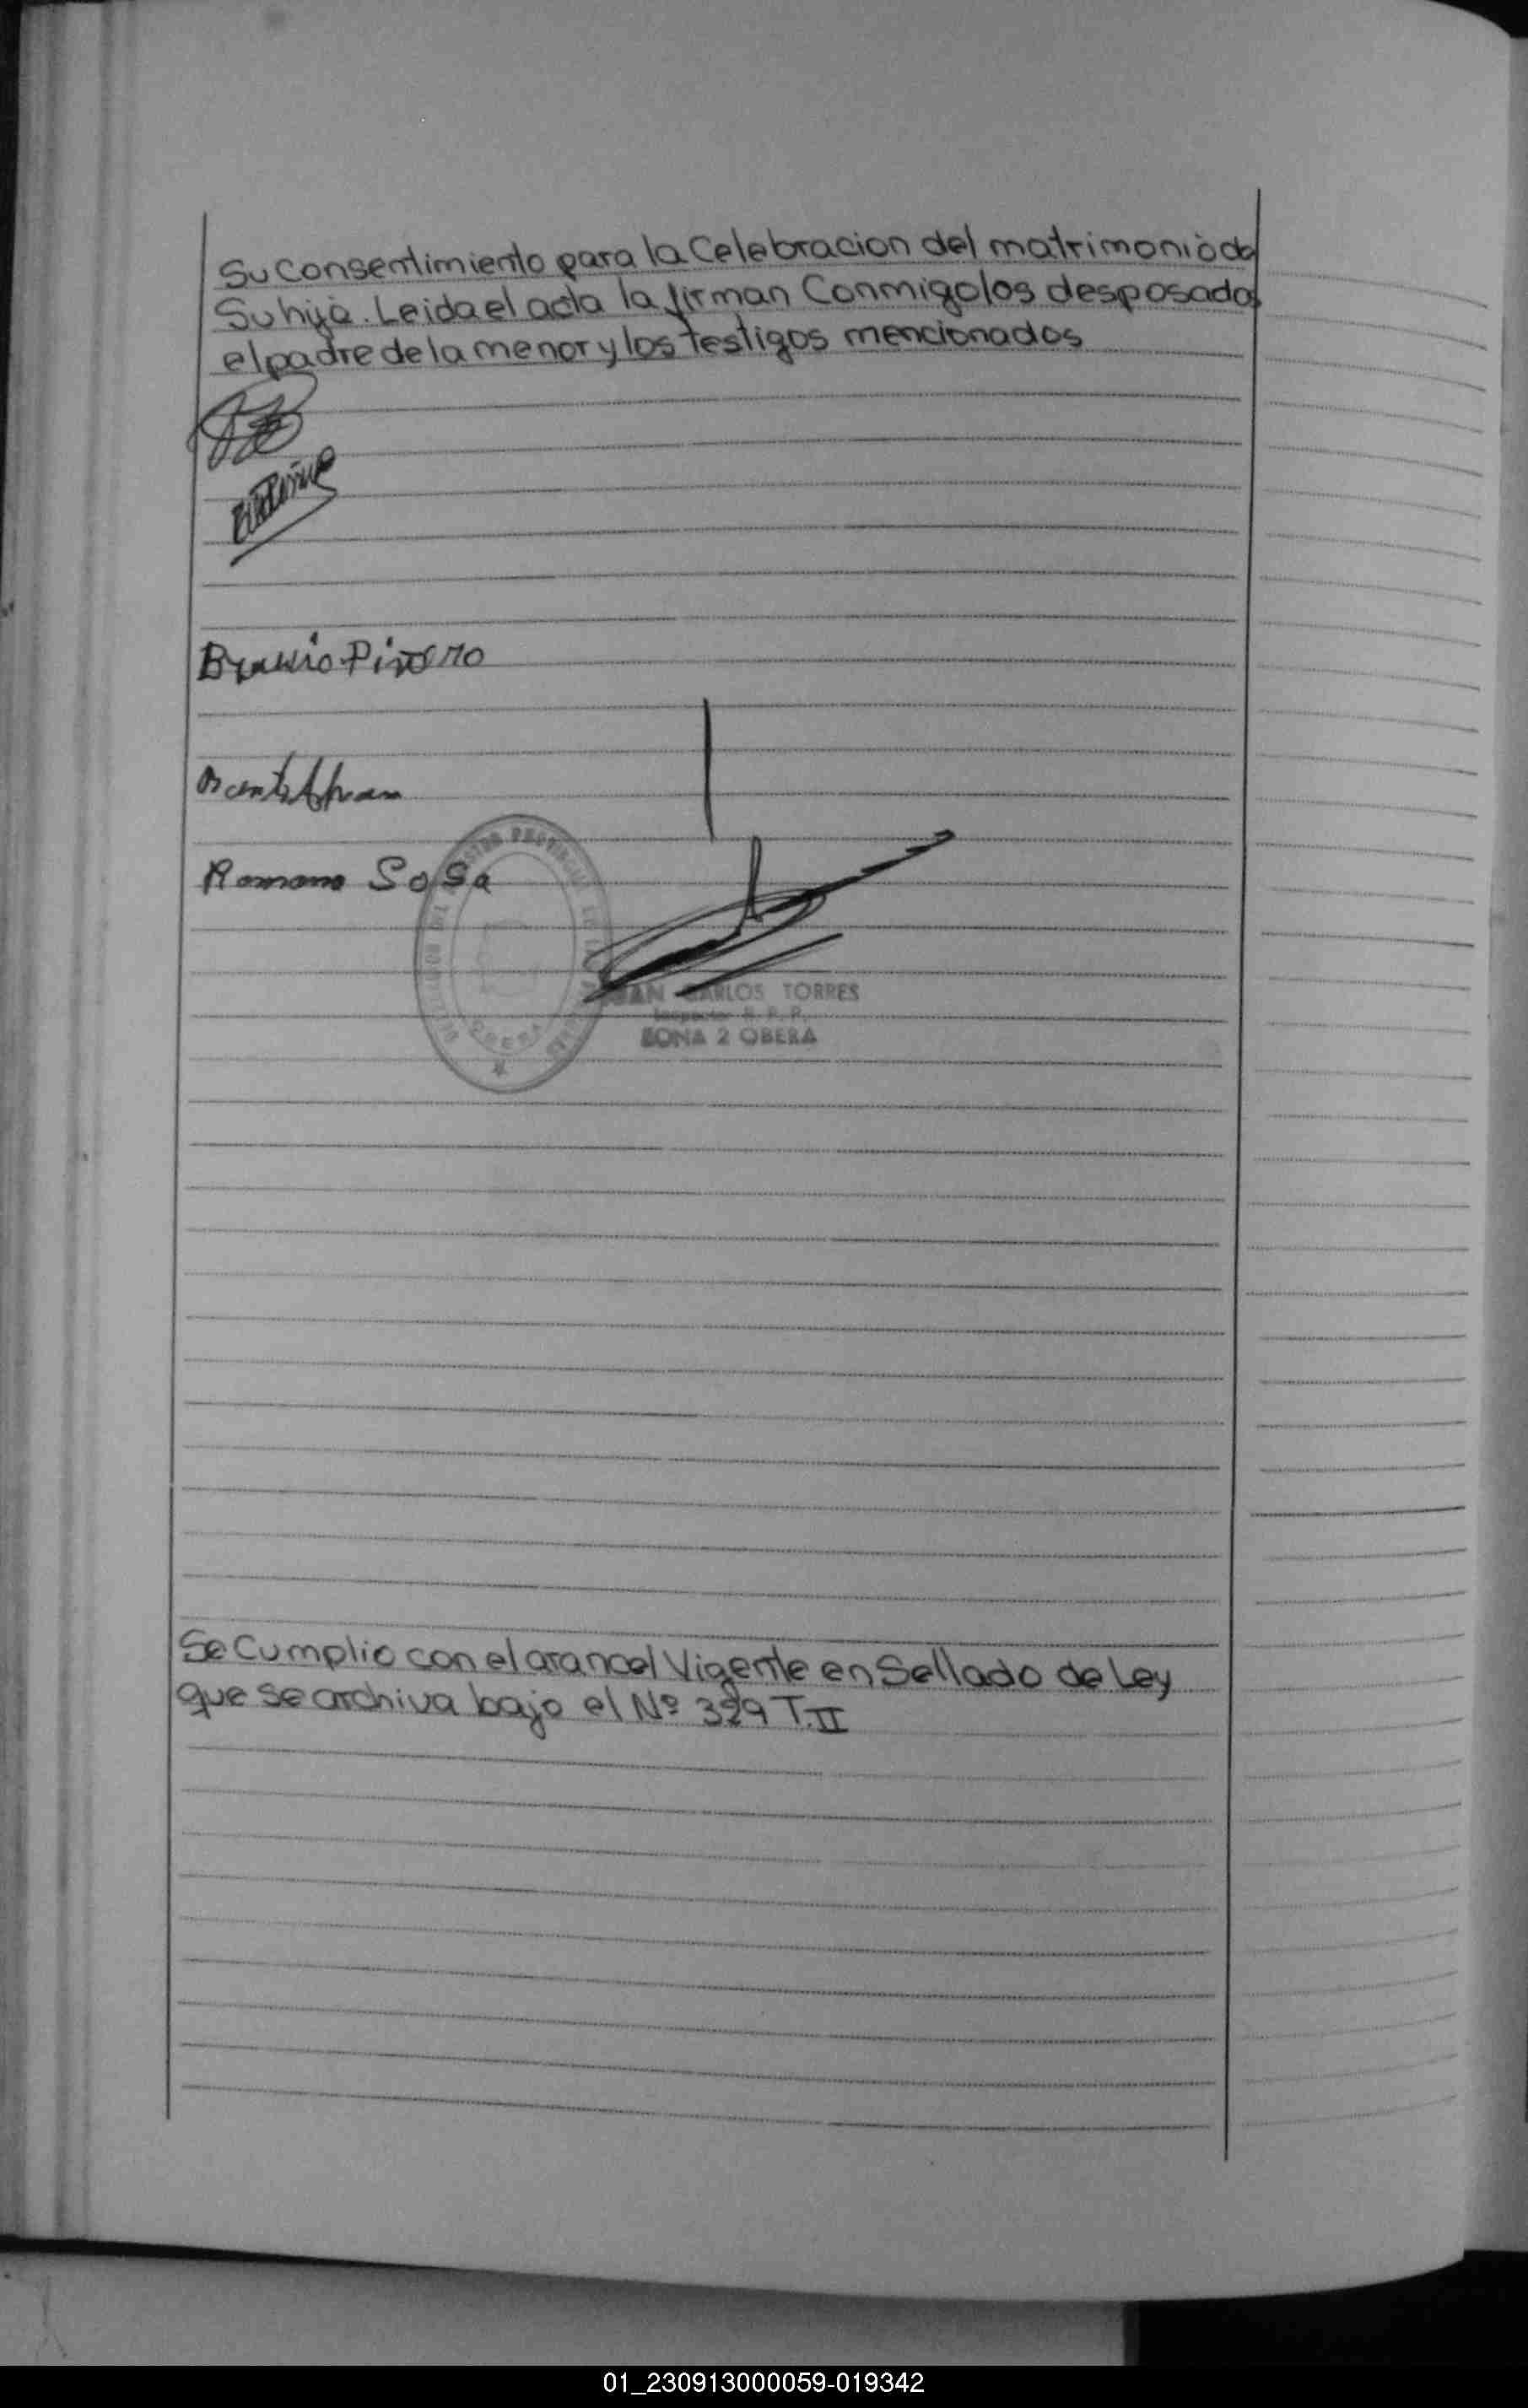 Su Consentimiento para la Celebracion del matrimonio de
Su hija. Leida el acta la firman Conmigo los desposados
el padre de la menor y los testigos mencionados
Romano Sosa
JUAN CARLOS TORRES
Inspector R. P. P.
ZONA 2 OBERA
OBERA
Se Cumplio con el arancel Vigente en Sellado de Ley
que se archiva bajo el Nº 329 T. II
01_230913000059-019342